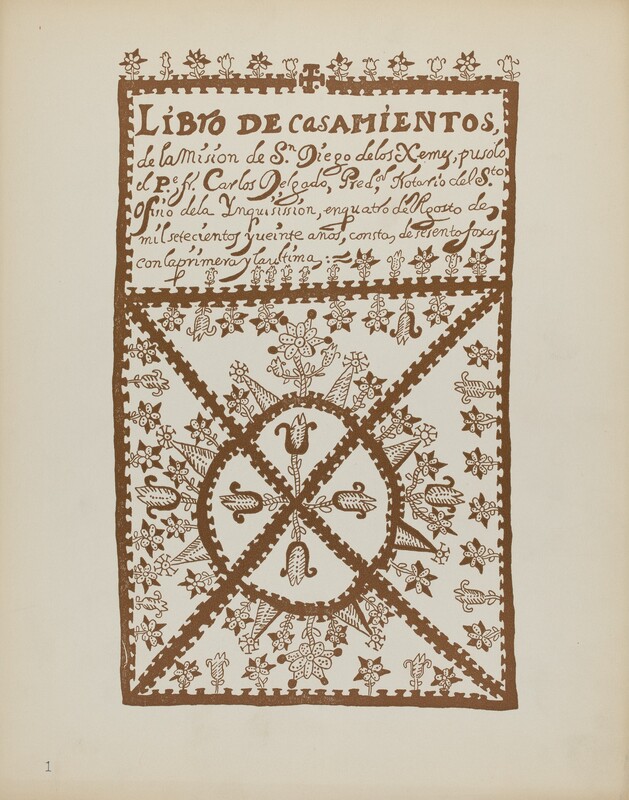 LiBro DE CasAMIENTOS,
de la Mision de Sn Diego de los Xemes, pusolo
el Pe fr. Carlos Delgado, Predor Notario del Sto
Ofisio dela Ynquisission, enquatro de Agosto de
mil setecientos y veinte años, consta, de sesenta foxas
con la primera y la ultima,
1